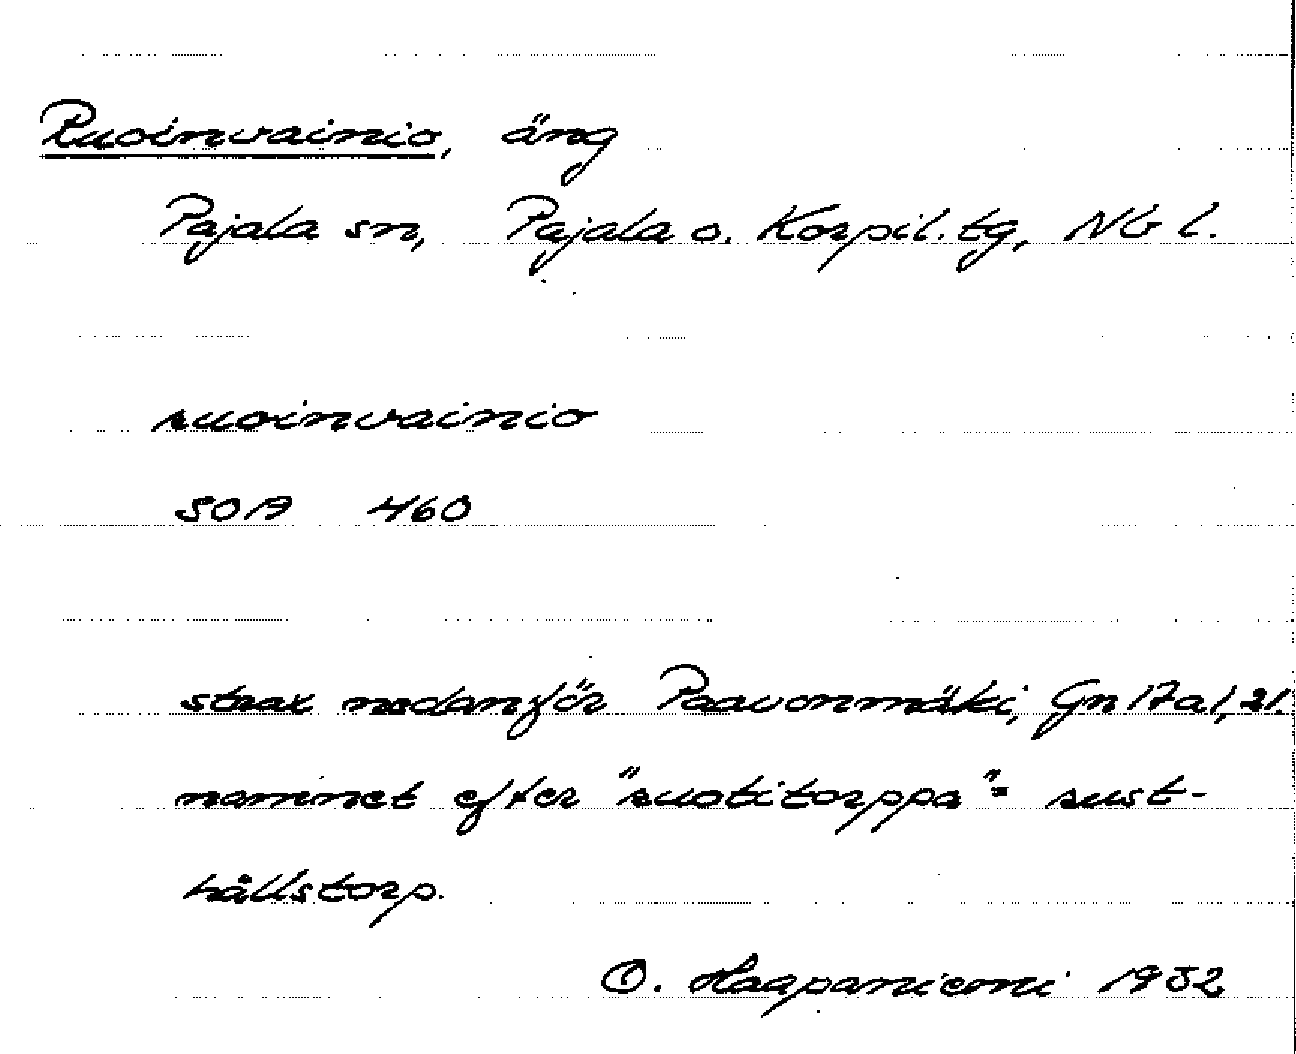 Ruoinvainio, äng
Pajala sn, Pajala o. Korpil. tg, Nb l.
ruoinvainio
SOA 460
strax nedanför Paavonmäki, Gn 17a1,21.
namnet efter "ruotitorppa" = rust-
hållstorp.
O. Haapaniemi 1932